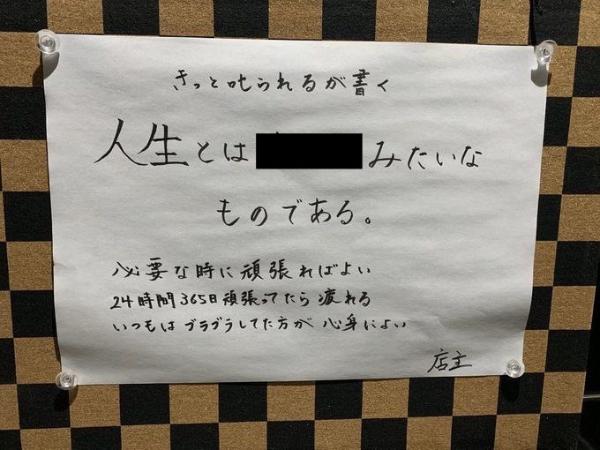 きっと叱られるが書く
人生とは みたいな
ものである。
必要な時に頑張ればよい
24時間365日頑張ってたら疲れる
いつもはブラブラしてた方が心身によい
店主